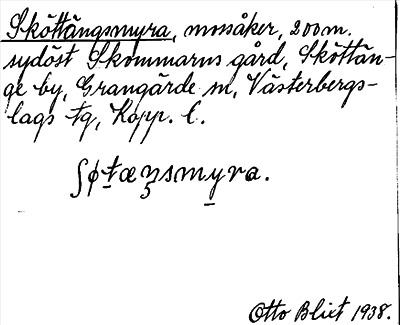 Sköttängsmyra, mossåker, 200 m.
sydöst Skommarns gård, Sköttän-
ge by, Grangärde sn, Västerbergs-
lags tg, Kopp. l.
ʃɸtæŋsmyra.
Otto Blixt 1938.